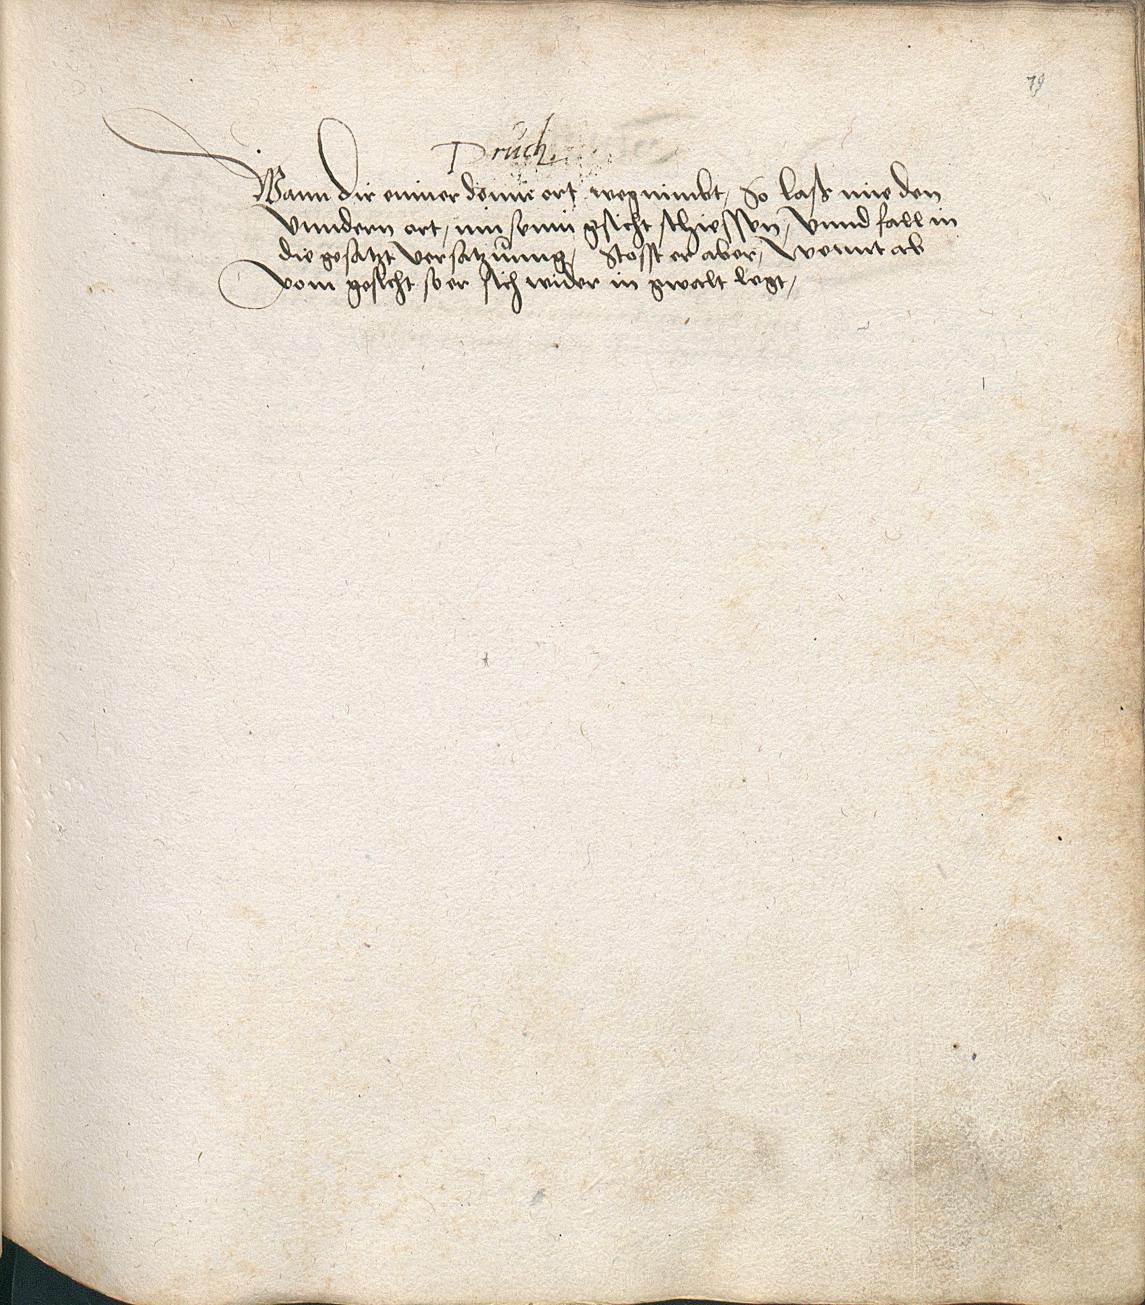 79
Druch.
Wann dir einner deinn ort wegnimbt, So lass nur den
Vnndern ort, inn seinn gsicht schiessen, Vnnd fall in
die gesatzt versatzúnng, Stosst er aber, Wennt ab
vom gesicht so er sich wider in gwalt legt,